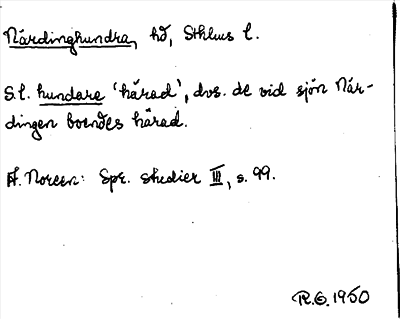 Närdinghundra, hd, Sthlms l.
S.l. hundare 'härad', dvs. de vid sjön När-
dingen boendes härad.
A. Noreen: Spr. studier III, s. 99.
R.O. 1950